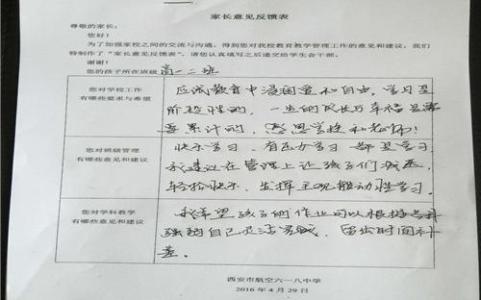 家长意见反馈表
尊敬的家长：
您好！
为了加强家校之间的交流与沟通，得到您对我校教育教学管理工作的意见和建议，我们
特制作了“家长意见反馈表”，请您认真填写之后递交给学生会干部。
谢谢！
您的孩子所在班级 高一二班
您对学校工作
有哪些要求与希望
应试教育中 和自由，学习是
阶段性的，一生的成长乃幸福是需
要累计的，感恩学校和老师！
您对班级管理
有哪些意见和建议
快乐学习、有压力学习 都是学习
我建议在管理上让孩子们减压，
轻松快乐，发挥主观能动性学习。
您对学科教学
有哪些意见和建议
我希望孩子们作业可以根据学科
强弱自己灵活完成，留出时间补
差。
西安市航空六一八中学
2016年4月29日